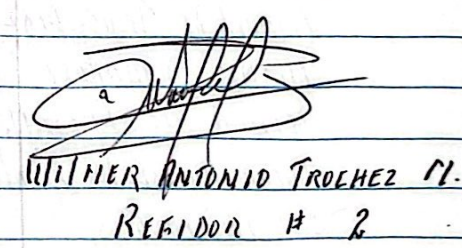 WILMER ANTONIO TROCHEZ M.
REGIDOR # 2